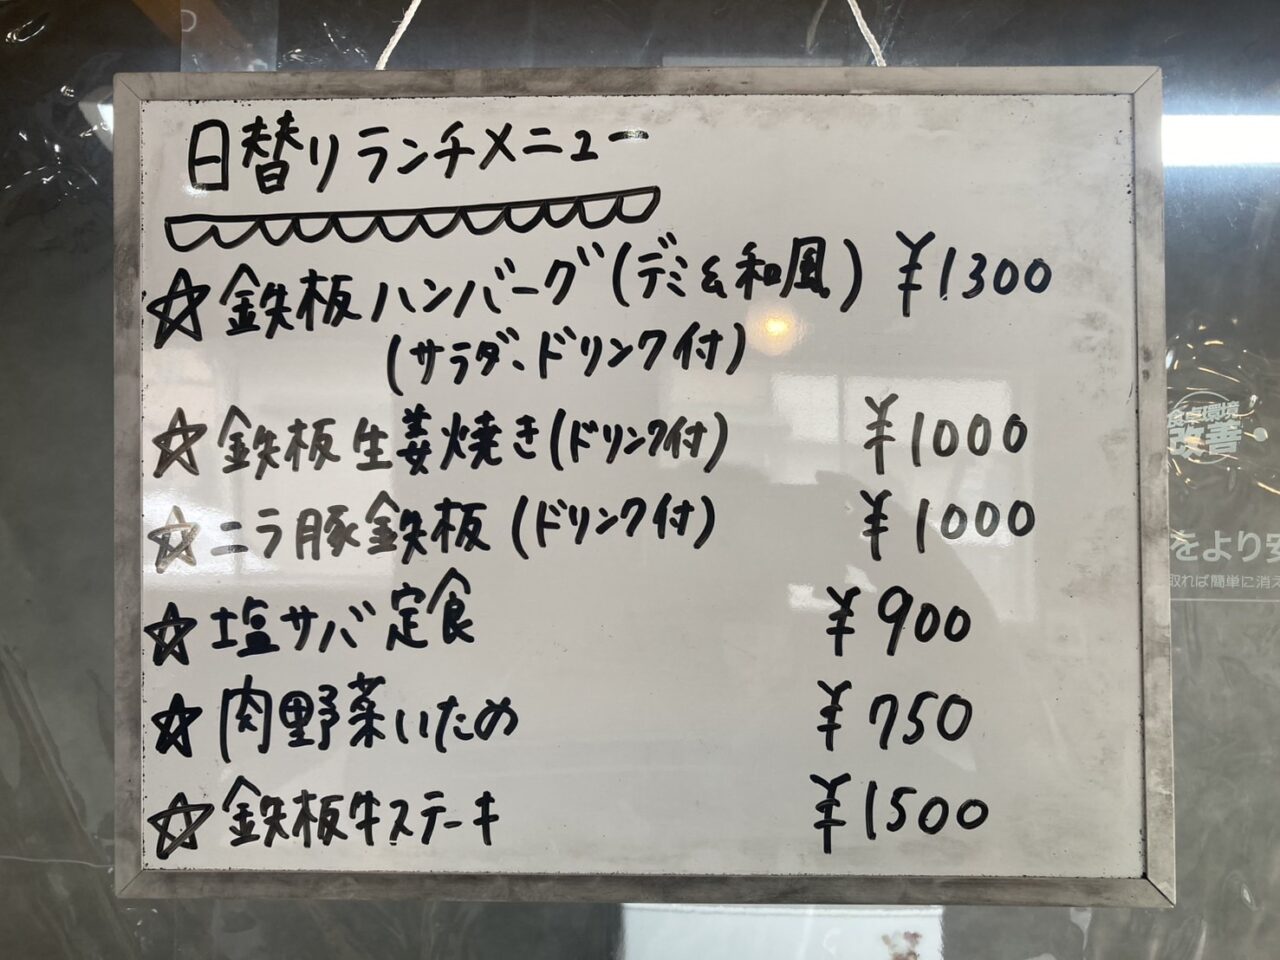 日替りランチメニュー
☆鉄板ハンバーグ(デミ&和風) ¥1300
(サラダ、ドリンク付)
☆鉄板生姜焼き(ドリンク付) ¥1000
☆ニラ豚鉄板(ドリンク付) ¥1000
☆塩サバ定食 ¥900
☆肉野菜いため ¥750
☆鉄板牛ステーキ ¥1500
食卓環境
改善
をより安
取れば簡単に消え